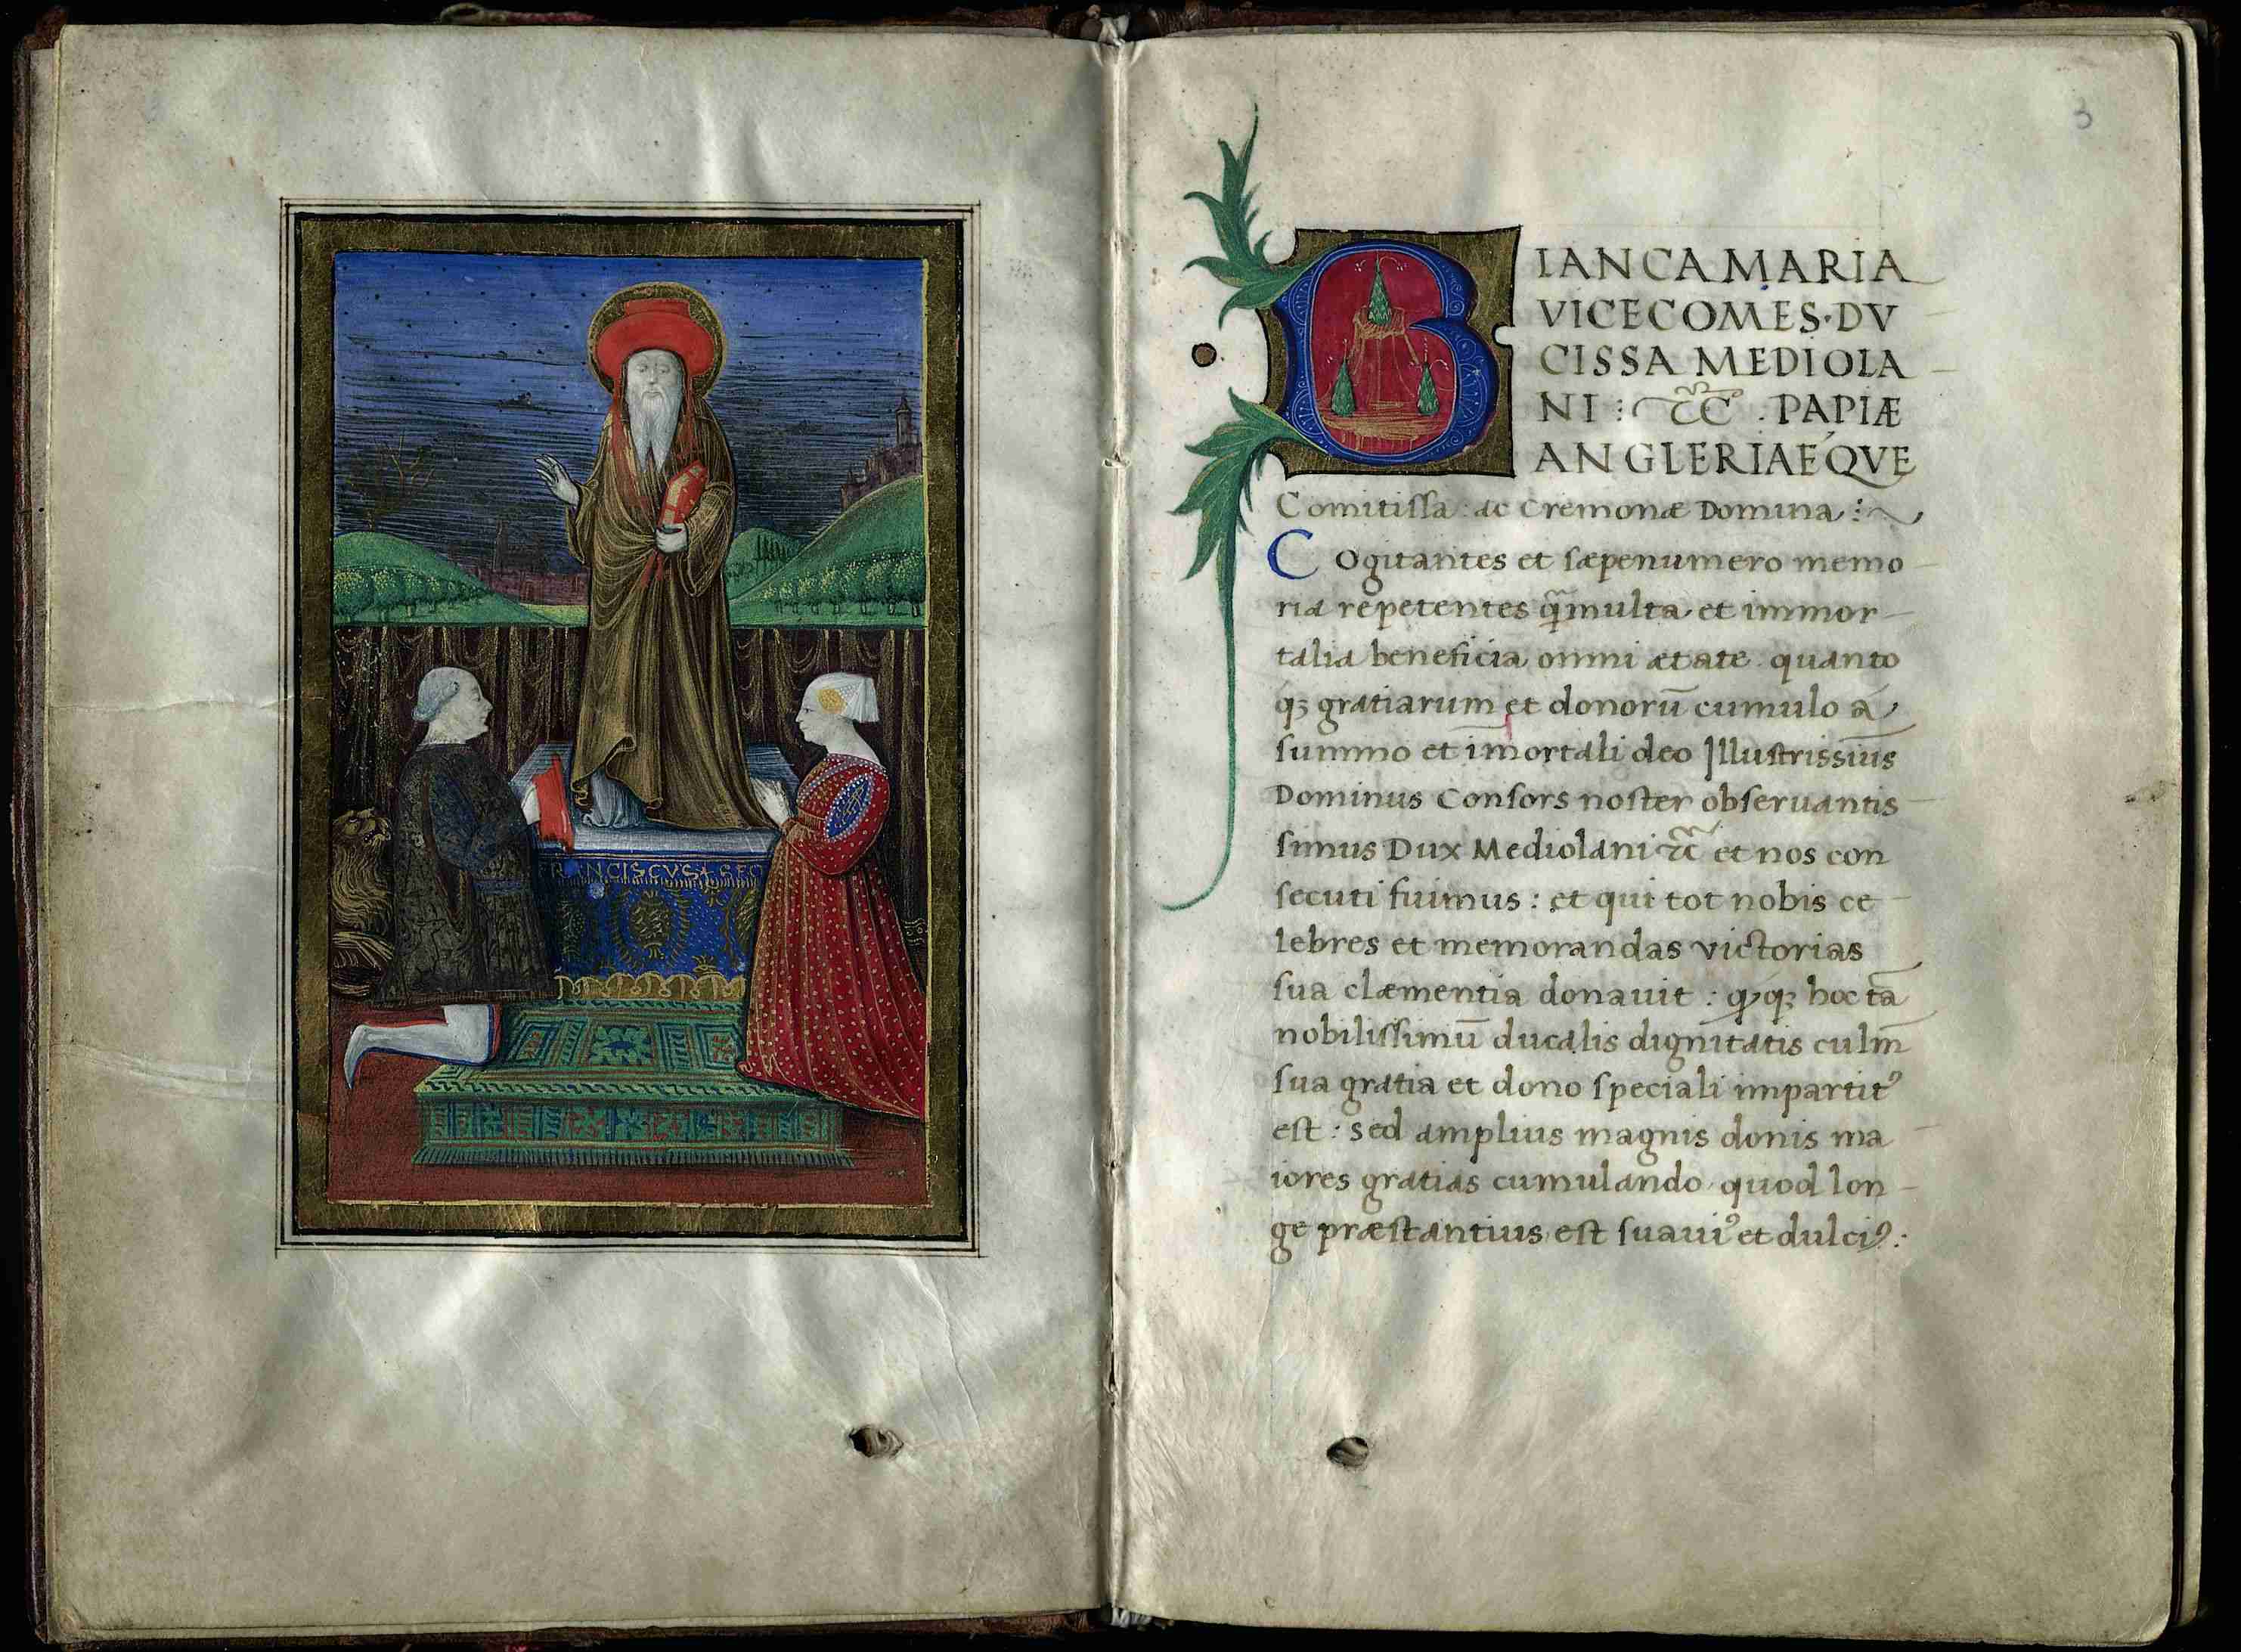 FRANCISCVS SFO
3
BIANCA MARIA
VICECOMES · DV
CISSA MEDIOLA
NI : &c̃c̃ . PAPIÆ
ANGLERIAEQVE
Comitiſſa : ac Cremonæ Domina :
COgitantes et ſæpenumero memo
ria repetentes q̃multa et immor
talia beneficia omni ætate quanto
qꝫ gratiarum et donorū cumulo a
ſummo et īmortali deo Illuſtrissiūs
Dominus Conſors noſter obſeruantis
ſimus Dux Mediolani &c̃ et nos con
ſecuti fuimus : et qui tot nobis ce
lebres et memorandas victorias
ſua clæmentia donauit : qꝫ hoc tā
nobiliſſimū ducalis dignitatis culm̄
ſua gratia et dono ſpeciali impartitꝰ
eſt : sed amplius magnis donis ma
iores gratias cumulando quod lon
ge præſtantius eſt ſuauiꝰ et dulciꝰ :